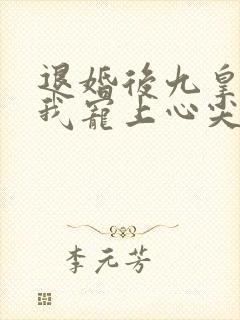 退婚後九皇
我寵上心尖
李元芳